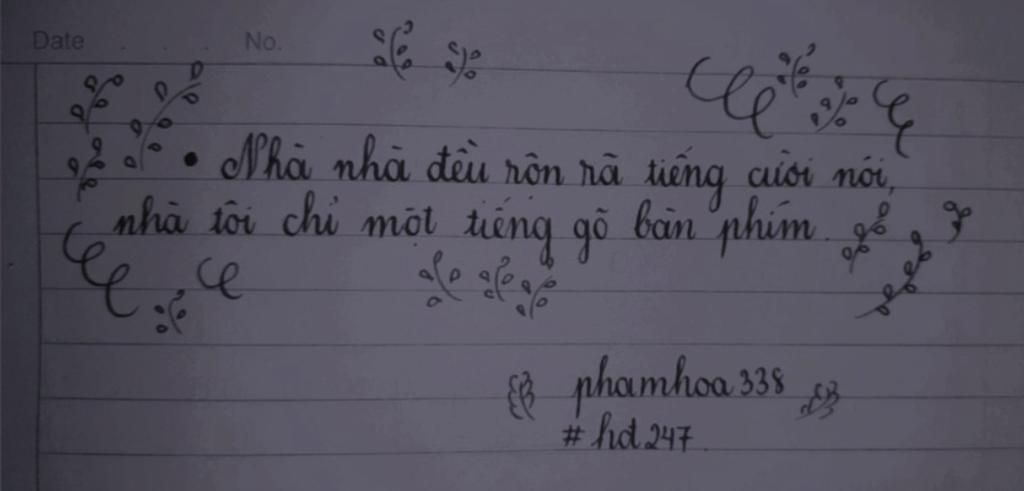 Date . . . No.
• Nhà nhà đều rôn rã tiếng cười nói,
nhà tôi chỉ một tiếng gõ bàn phím.
phamhoa338
#hd247